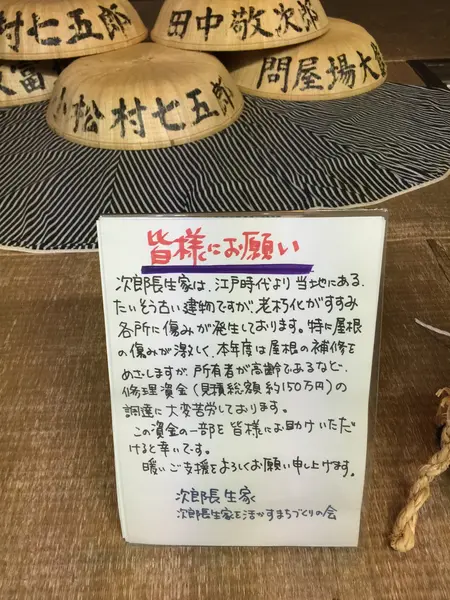 村七五郎
田中敬次郎
問屋場大
小松村七五郎
皆様にお願い
次郎長生家は、江戸時代より当地にある、
たいそう古い建物ですが、老朽化がすすみ
各所に傷みが発生しております。特に屋根
の傷みが激しく、本年度は屋根の補修を
めざしますが、所有者が高齢であるなど、
修理資金(見積総額約150万円)の
調達に大変苦労しております。
この資金の一部を皆様にお助けいただ
けると幸いです。
暖いご支援をよろしくお願い申し上げます。
次郎長生家
次郎長生家を活かすまちづくりの会